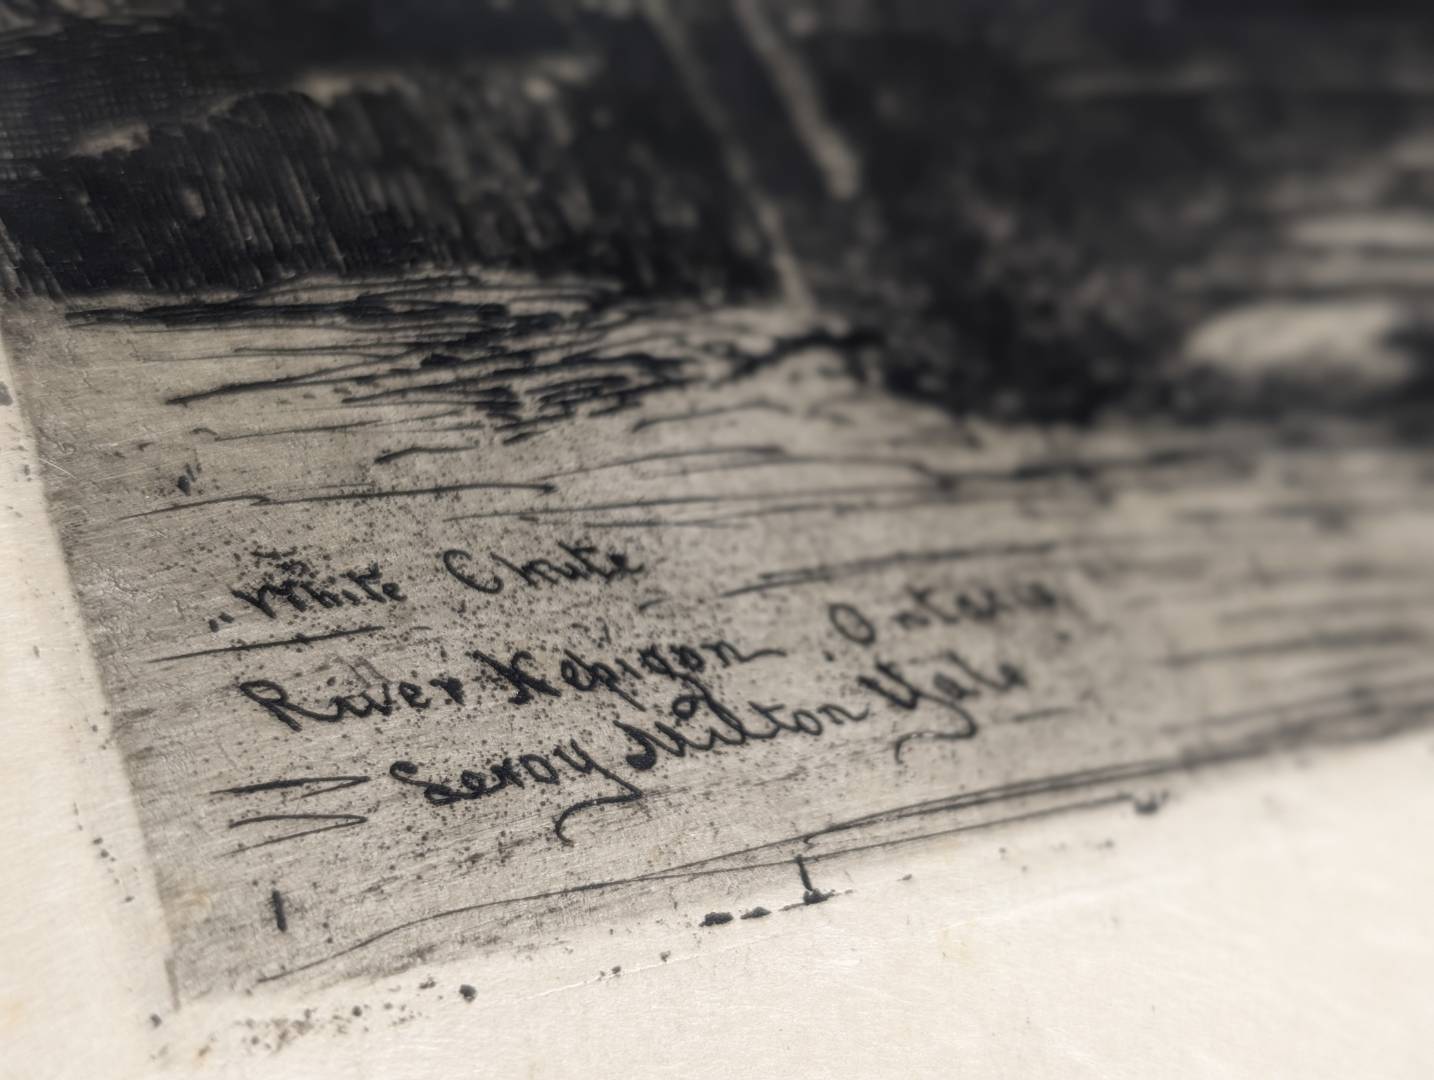 "White Chute
River Nepigon. Ontario
Leroy Milton Yale